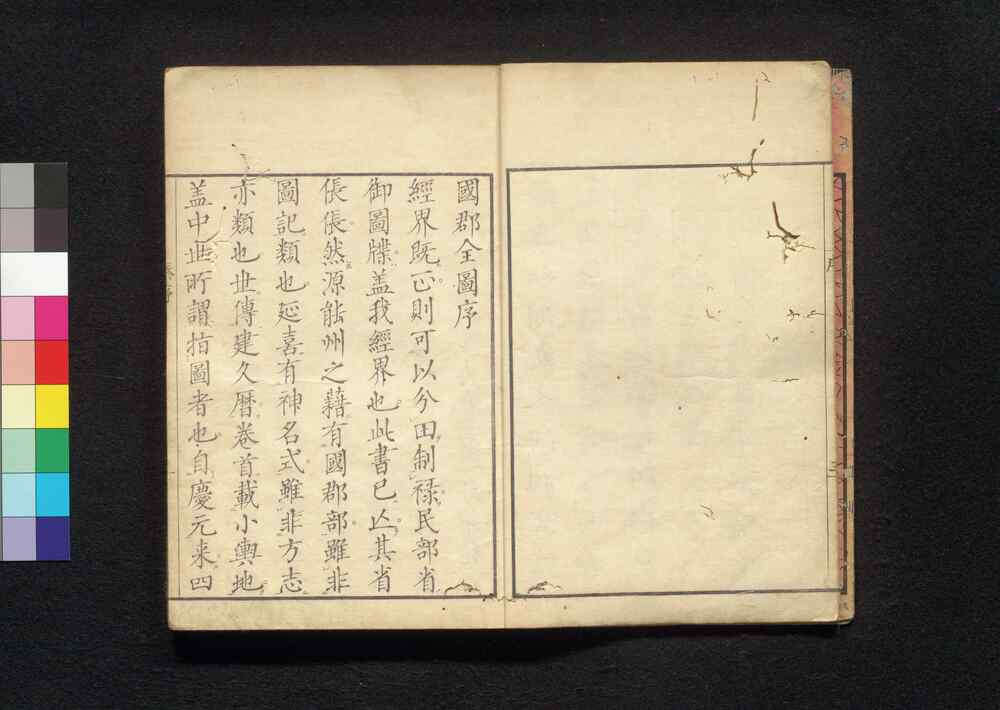 國郡全圖序
經界既正則可以分田制禄民部省
御圖牒盖我經界也此書已亾其省
倀倀然源能州之藉有國郡部雖非
圖記類也延喜有神名式雖非方志
亦類也世傳建久暦巻首載小輿地
盖中世所謂指圖者也自慶元来四